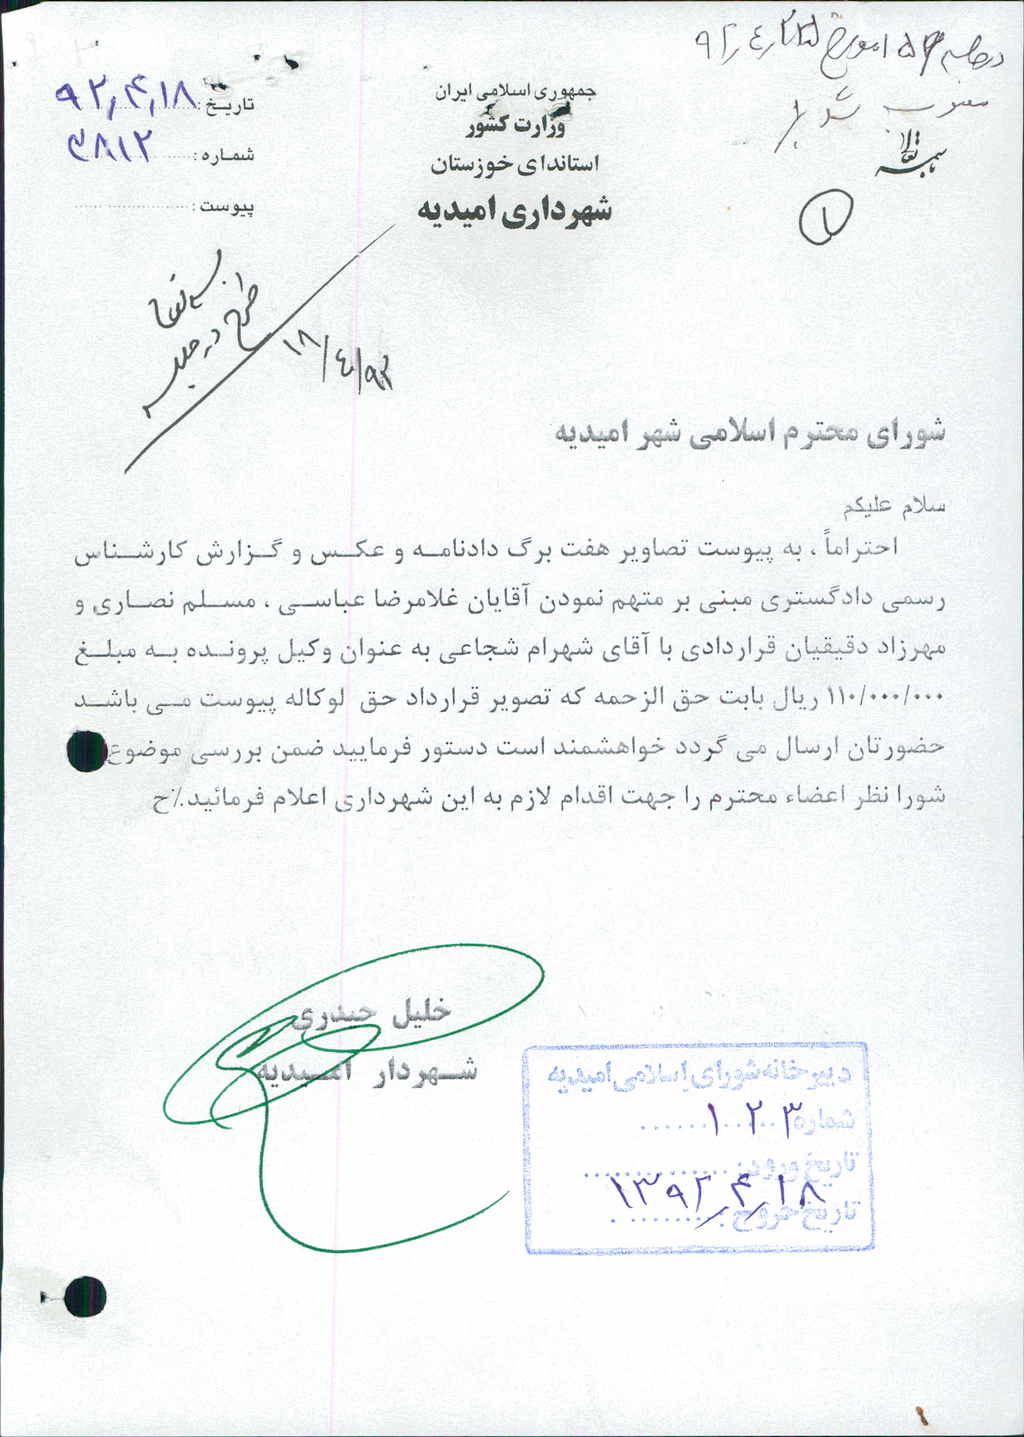 در جلسه ۱۵۴ مورخ ۹۲٫۴٫۲۵
مصوب شد
بسمه تعالی
۱
جمهوری اسلامی ایران
وزارت کشور
استاندای خوزستان
شهرداری امیدیه
تاریخ : ۹۲٫۴٫۱۸
شماره : ۳۸۱۲
پیوست :
بسمه تعالی
طرح در جلسه
۱۸/۴/۹۲
شورای محترم اسلامی شهر امیدیه
سلام علیکم
احتراماً ، به پیوست تصاویر هفت برگ دادنامه و عکس و گزارش کارشناس
رسمی دادگستری مبنی بر متهم نمودن آقایان غلامرضا عباسی ، مسلم نصاری و
مهرزاد دقیقیان قراردادی با آقای شهرام شجاعی به عنوان وکیل پرونده به مبلغ
۱۱۰/۰۰۰/۰۰۰ ریال بابت حق الزحمه که تصویر قرارداد حق لوکاله پیوست می باشد
حضورتان ارسال می گردد خواهشمند است دستور فرمایید ضمن بررسی موضوع
شورا نظر اعضاء محترم را جهت اقدام لازم به این شهرداری اعلام فرمائید.٪ح
خلیل حیدری
شهردار امیدیه
دبیرخانه شورای اسلامی امیدیه
شماره ۱۰۲۳
تاریخ ورود:
۱۳۹۲٫۴٫۱۸
تاریخ خروج: